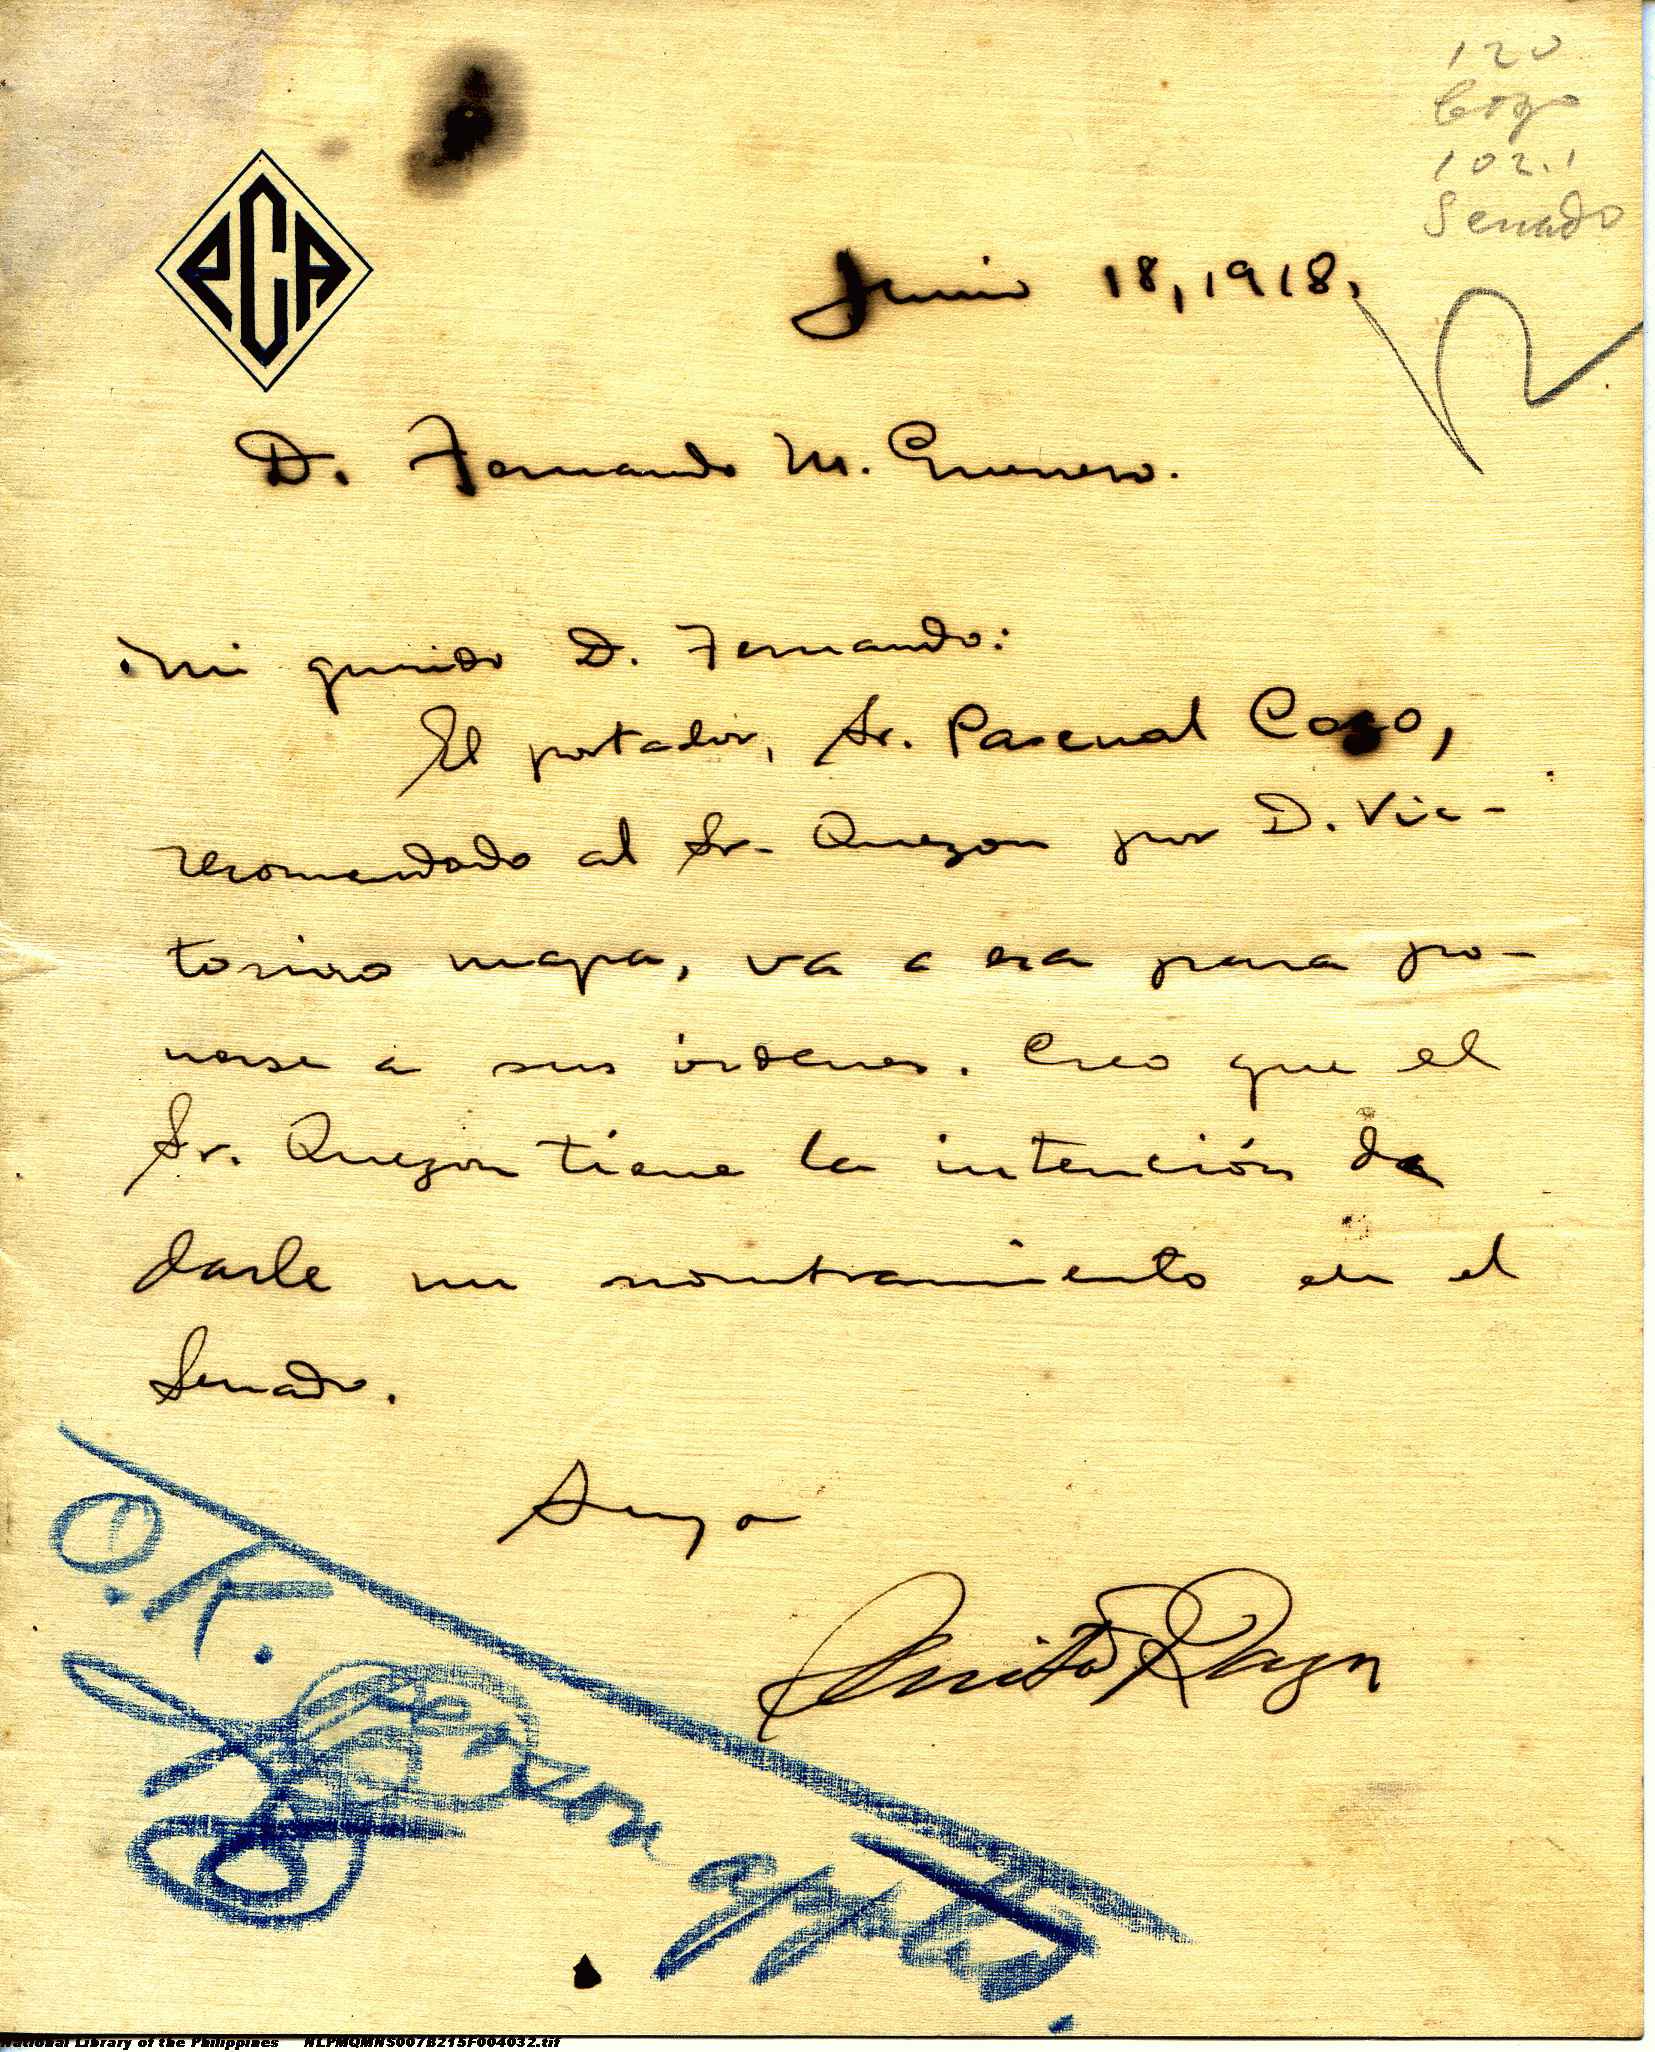 120
Cozo
102.1
Senado
PCA
Junio 18, 1918.
D. Fernando M. Guerrero.
Mi querido D. Fernando:
El portador, Sr. Pascual Cozo,
recomendado al Sr. Quezon por D. Vic-
torino Mapa, va a esa para po-
nerse a sus órdenes. Creo que el
Sr. Quezon tiene la intención de
darle un nombramiento en el
Senado.
Suyo
O.K.
on apptd.
National Library of the Philippines NLPMQMNS007B215F004032.tif